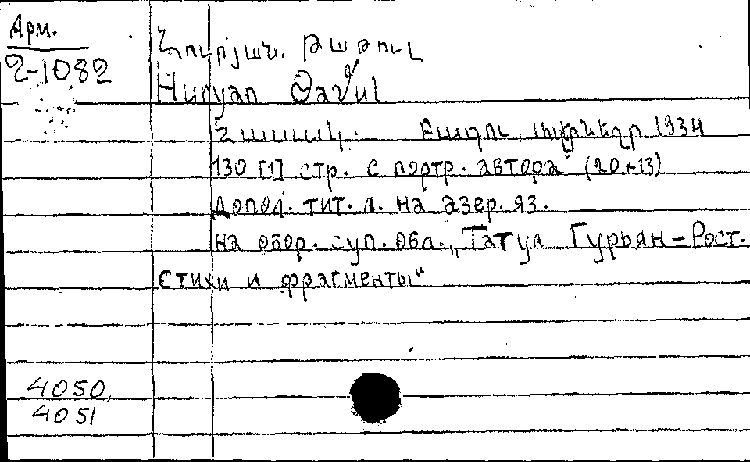 Арм.
2-1082
Հուրյան. Թաթուլ
Huryan Թaтul
Հասակ. Բաքու, 1934
130 [1] стр. с портр. автора (20×13)
Допол. тит. л. на азер. яз.
На обор. суп. обл. „Татул Гурьян – Рост.
Стихи и фрагменты"
4050,
4051